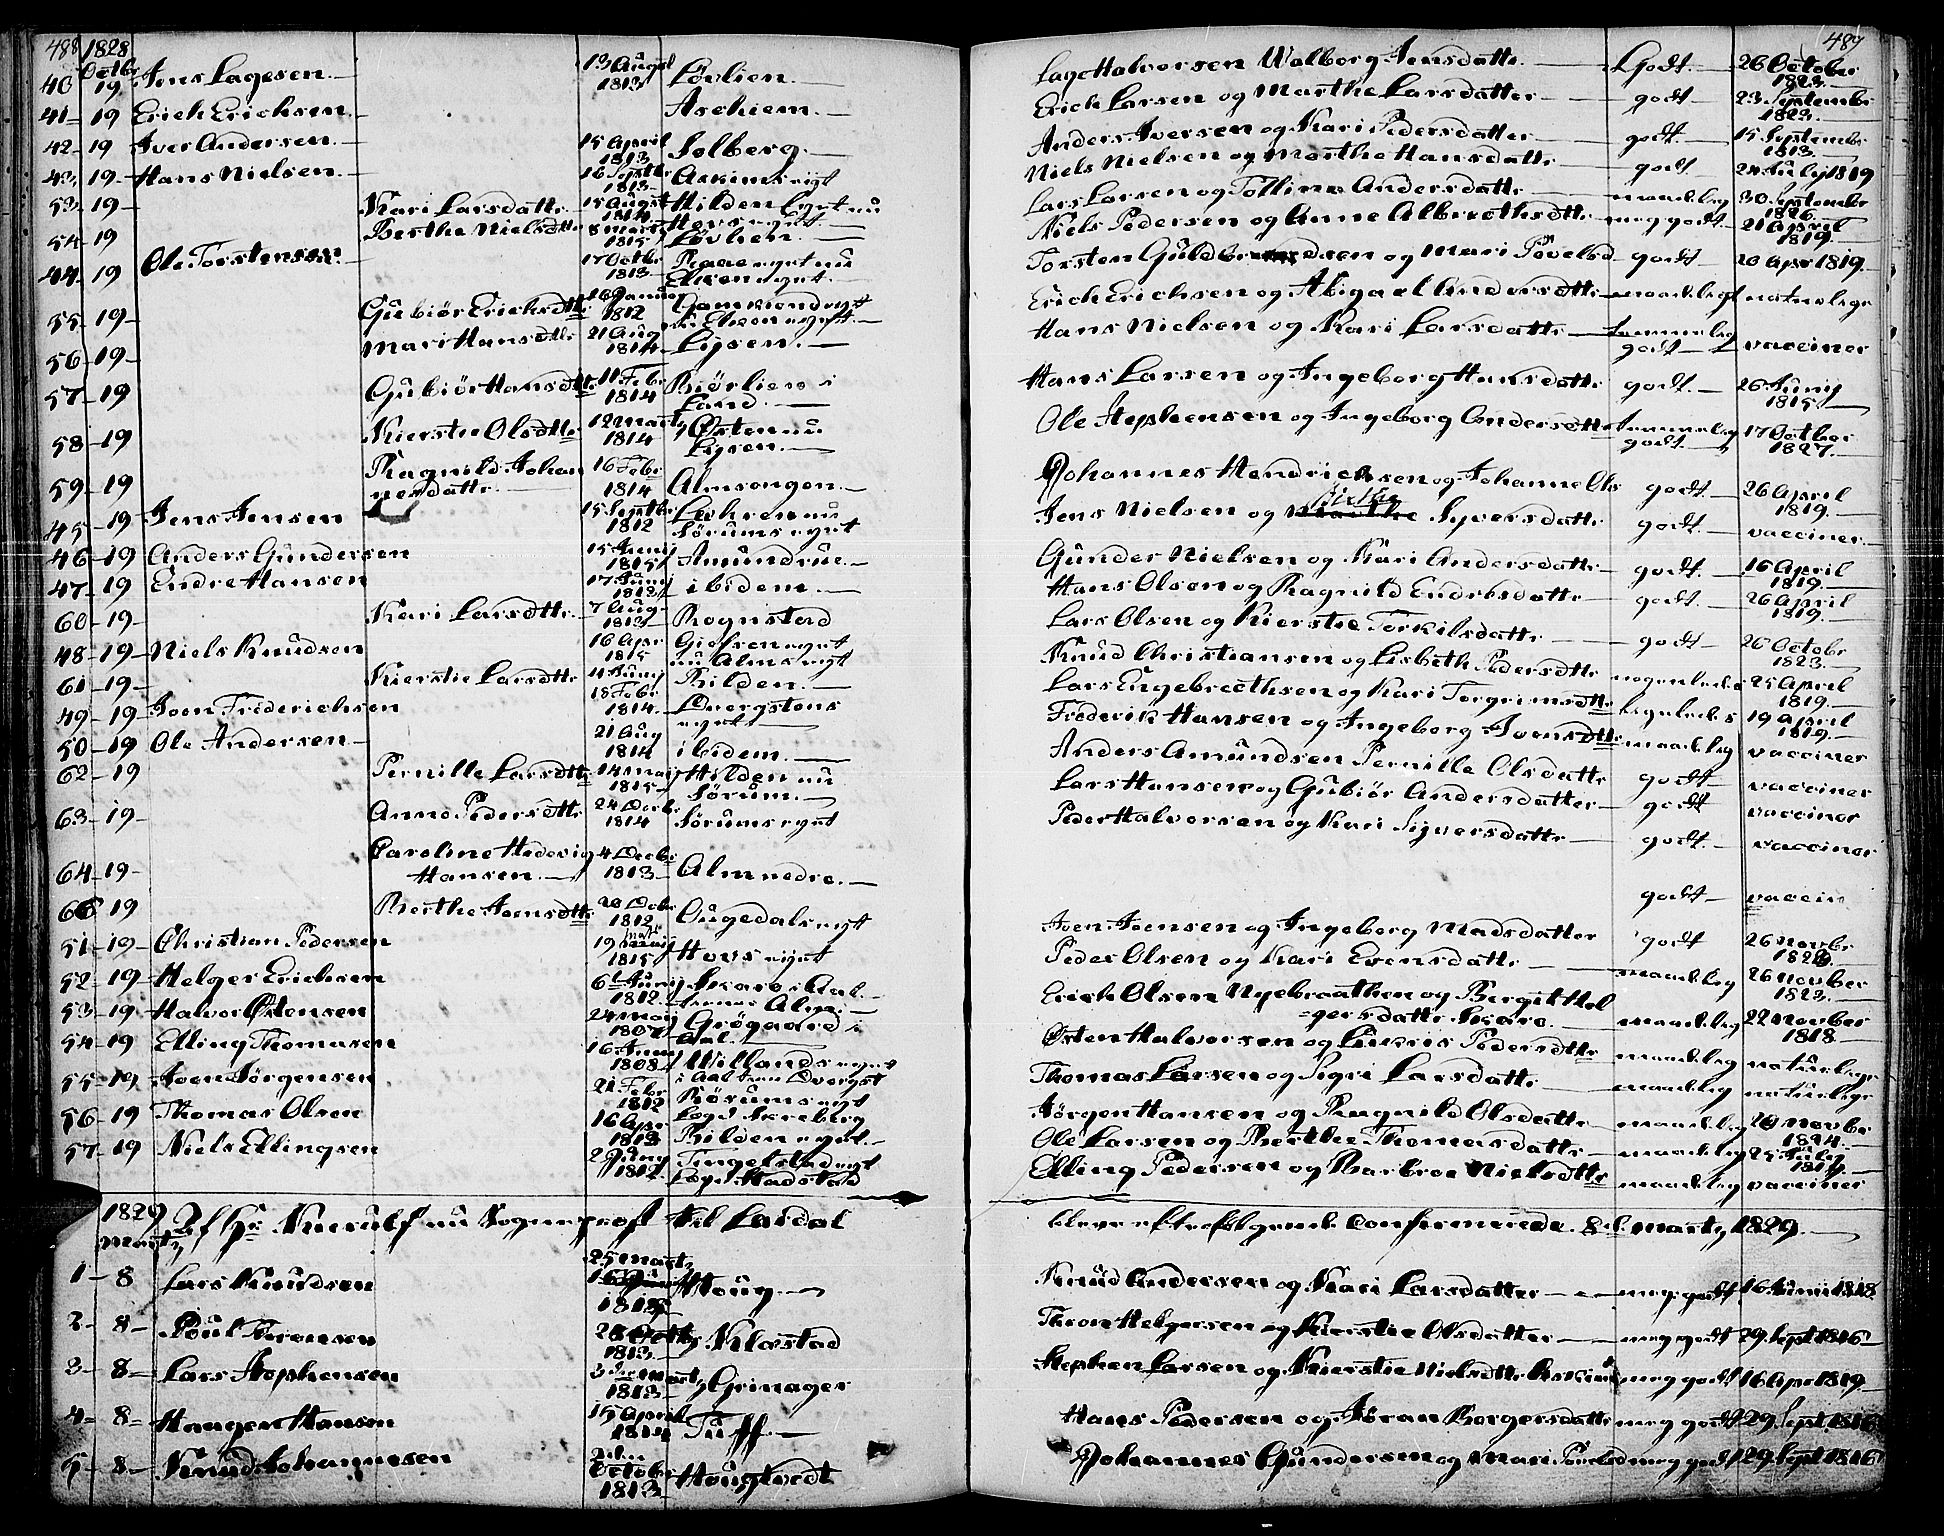 488 1828
Octbr
40 19 Jens Lagesen 13 August 1813 Løvlien
41 19 Erich Erichsen Aschiem
42 19 Iver Andersen 15 April 1813 Solberg
43 19 Hans Nielsen 16 Septbr 1813 Askimseygt
53 19 Kari Larsdattr 15 August 1814 Hilden Eygt nu
54 19 Berthe Nielsdttr 8 Marty 1815 Hovseygt Løvlien
44 19 Ole Torstensen 17 Octbr 1813 eygt nu
55 19 Gubiør Erichsdttr 16 Januar 1812
56 19 Mari Hansdttr 21 Aug 1814 Lysen
57 19 Gubiør Hansdttr 11 Febr 1814 Biørlien i Land
58 19 Kierstie Olsdttr 12 Marty 1814 Østen nu Lysen
59 19 Ragnild Johan
nesdattr 16 Febr 1814 Almsongen
45 19 Jens Jensen 15 Septbr 1812 nu Sørumseygt
46 19 Anders Gundersen 15 Junij 1815 Amundrue
47 19 Endre Hansen 17 Junij 1812 ibidem
60 19 Kari Larsdttr 7 Aug 1813 Rognstad
48 19 Niels Knudsen 16 Apr 1815 eygt nu Almseygt
61 19 Kierstie Larsdttr 4 Junij Bilden
49 19 Joen Friderichsen 18 Febr 1814 Dvergstens eygt
50 19 Ole Andersen 21 Aug 1814 ibidem
62 19 Pernille Larsdttr 14 May 1815 Hilden nu Sørum
63 19 Anne Pedersdttr 24 Decbr 1814 Sørumseygt
64 19 Caroline Hedevig
Hansen 4 Decbr 1813 Alm nedre
66 19 Berthe Joensdttr 20 Octbr 1812 Ougedalseygt
51 19 Christian Pedersen 19 May 1815 Hovseygt
52 19 Helger Erichsen 6t Junij 1812 Skare i Aal
53 19 Halvor Østensen 24 May 1807 Grøgaard i Aal
54 19 Elling Thomasen 16 Junij 1808 Willandseygt
55 19 Joen Jørgensen 21 Febr 1812 i Aal Dvergst
56 19 Thomas Olsen 16 Apr 1813 Rørumseygt
57 19 Niels Ellingsen 2 Juny 1812 Tingelstadeygt
1829 Marty Af Hr Knerulf nu Sogneprest til Lardal
1 8 Lars Knudsen 25 Marty Houg
2 8 Poul Thronsen 1813 Klæstad
3 8 Lars Stephensen 3 Marty 1813 Grinager
4 8 Haagen Hansen 15 April 1814 Tuff
5 8 Knud Johannesen October 1813 Hougtvedt
489
Lage Halvorsen Walborg Jensdattr Godt 26 October 1823
Erich Larsen og Marthe Larsdatter godt 23 September 1823
Anders Iversen og Kari Pedersdatter godt 15 September 1813
Niels Nielsen og Marthe Hansdattr godt 24 July 1819
Lars Larsen og Tolline Andersdattr maadelig 30 September 1826
Niels Pedersen og Anne Albrecthsdttr meg godt 21 April 1819
Torsten Guldbrandsen og Mari Povelsd godt 20 Apr 1819
Erich Erichsen og Abigael Andersdttr maadeligt naturlige
Hans Nielsen og Kari Larsdattr temmelig godt vacciner
Hans Larsen og Ingeborg Hansdattr godt 26 Junij 1815
Ole Stephensen og Ingeborg Andersdttr temmelig godt 17 October 1827
Johannes Hendrichsen og Johanne Ols godt 26 April 1819
Jens Nielsen og Syversdattr godt vacciner
Gunder Nielsen og Kari Andersdattr godt 16 April 1819
Hans Olsen og Ragnild Endresdattr godt 26 April 1819
Lars Olsen og Kierstie Torkilsdattr godt 26 October 1823
Knud Christiansen og Lisbeth Pedersdttr nogenledes 25 April 1819
Lars Engebrecthsen og Kari Torgrimsdttr ligeledes 19 April 1819
Frederik Hansen og Ingeborg Iversdttr maadelig vacciner
Anders Amundsen Pernille Olsdattr godt vacciner
Lars Hansen og Gubiør Andersdatter godt vacciner
Peder Halvorsen og Kari Syversdattr godt vacciner
godt vaccin
Iven Joensen og Ingeborg Madsdatter godt 26 Novbr
Peder Olsen og Kari Evensdattr maadelig 26 November 1823
Erich Olsen Nyebraathen og Bergit Hel
=gersdattr Skare maadelig 22 November 1818
Østen Halvorsen og Siri Pedersdttr maadelig naturlige
Thomas Larsen og Sigri Larsdattr maadelig naturlige
Jørgen Hansen og Ragnild Olsdattr maadelig Novbr 1824
Ole Larsen og Berthe Thomasdattr maadelig 25 July 1819
Elling Pedersen og Barbroe Nielsdttr maadelig vacciner
bleve efterfølgende Confirmerede 8d Marty 1829
Knud Andersen og Kari Larsdatter meg godt 16 Junii 1818
Thron Helgersen og Kierstie Olsdatter meg godt 29 Sept 1816
Stephen Larsen og Kierstie Nielsdttr meg godt 16 Apr 1819
Hans Pedersen og Jøran Borgersdattr meg godt 29 Sept 1816
Johannes Gundersen og Mari Povelsd meg godt 29 Sept 1816